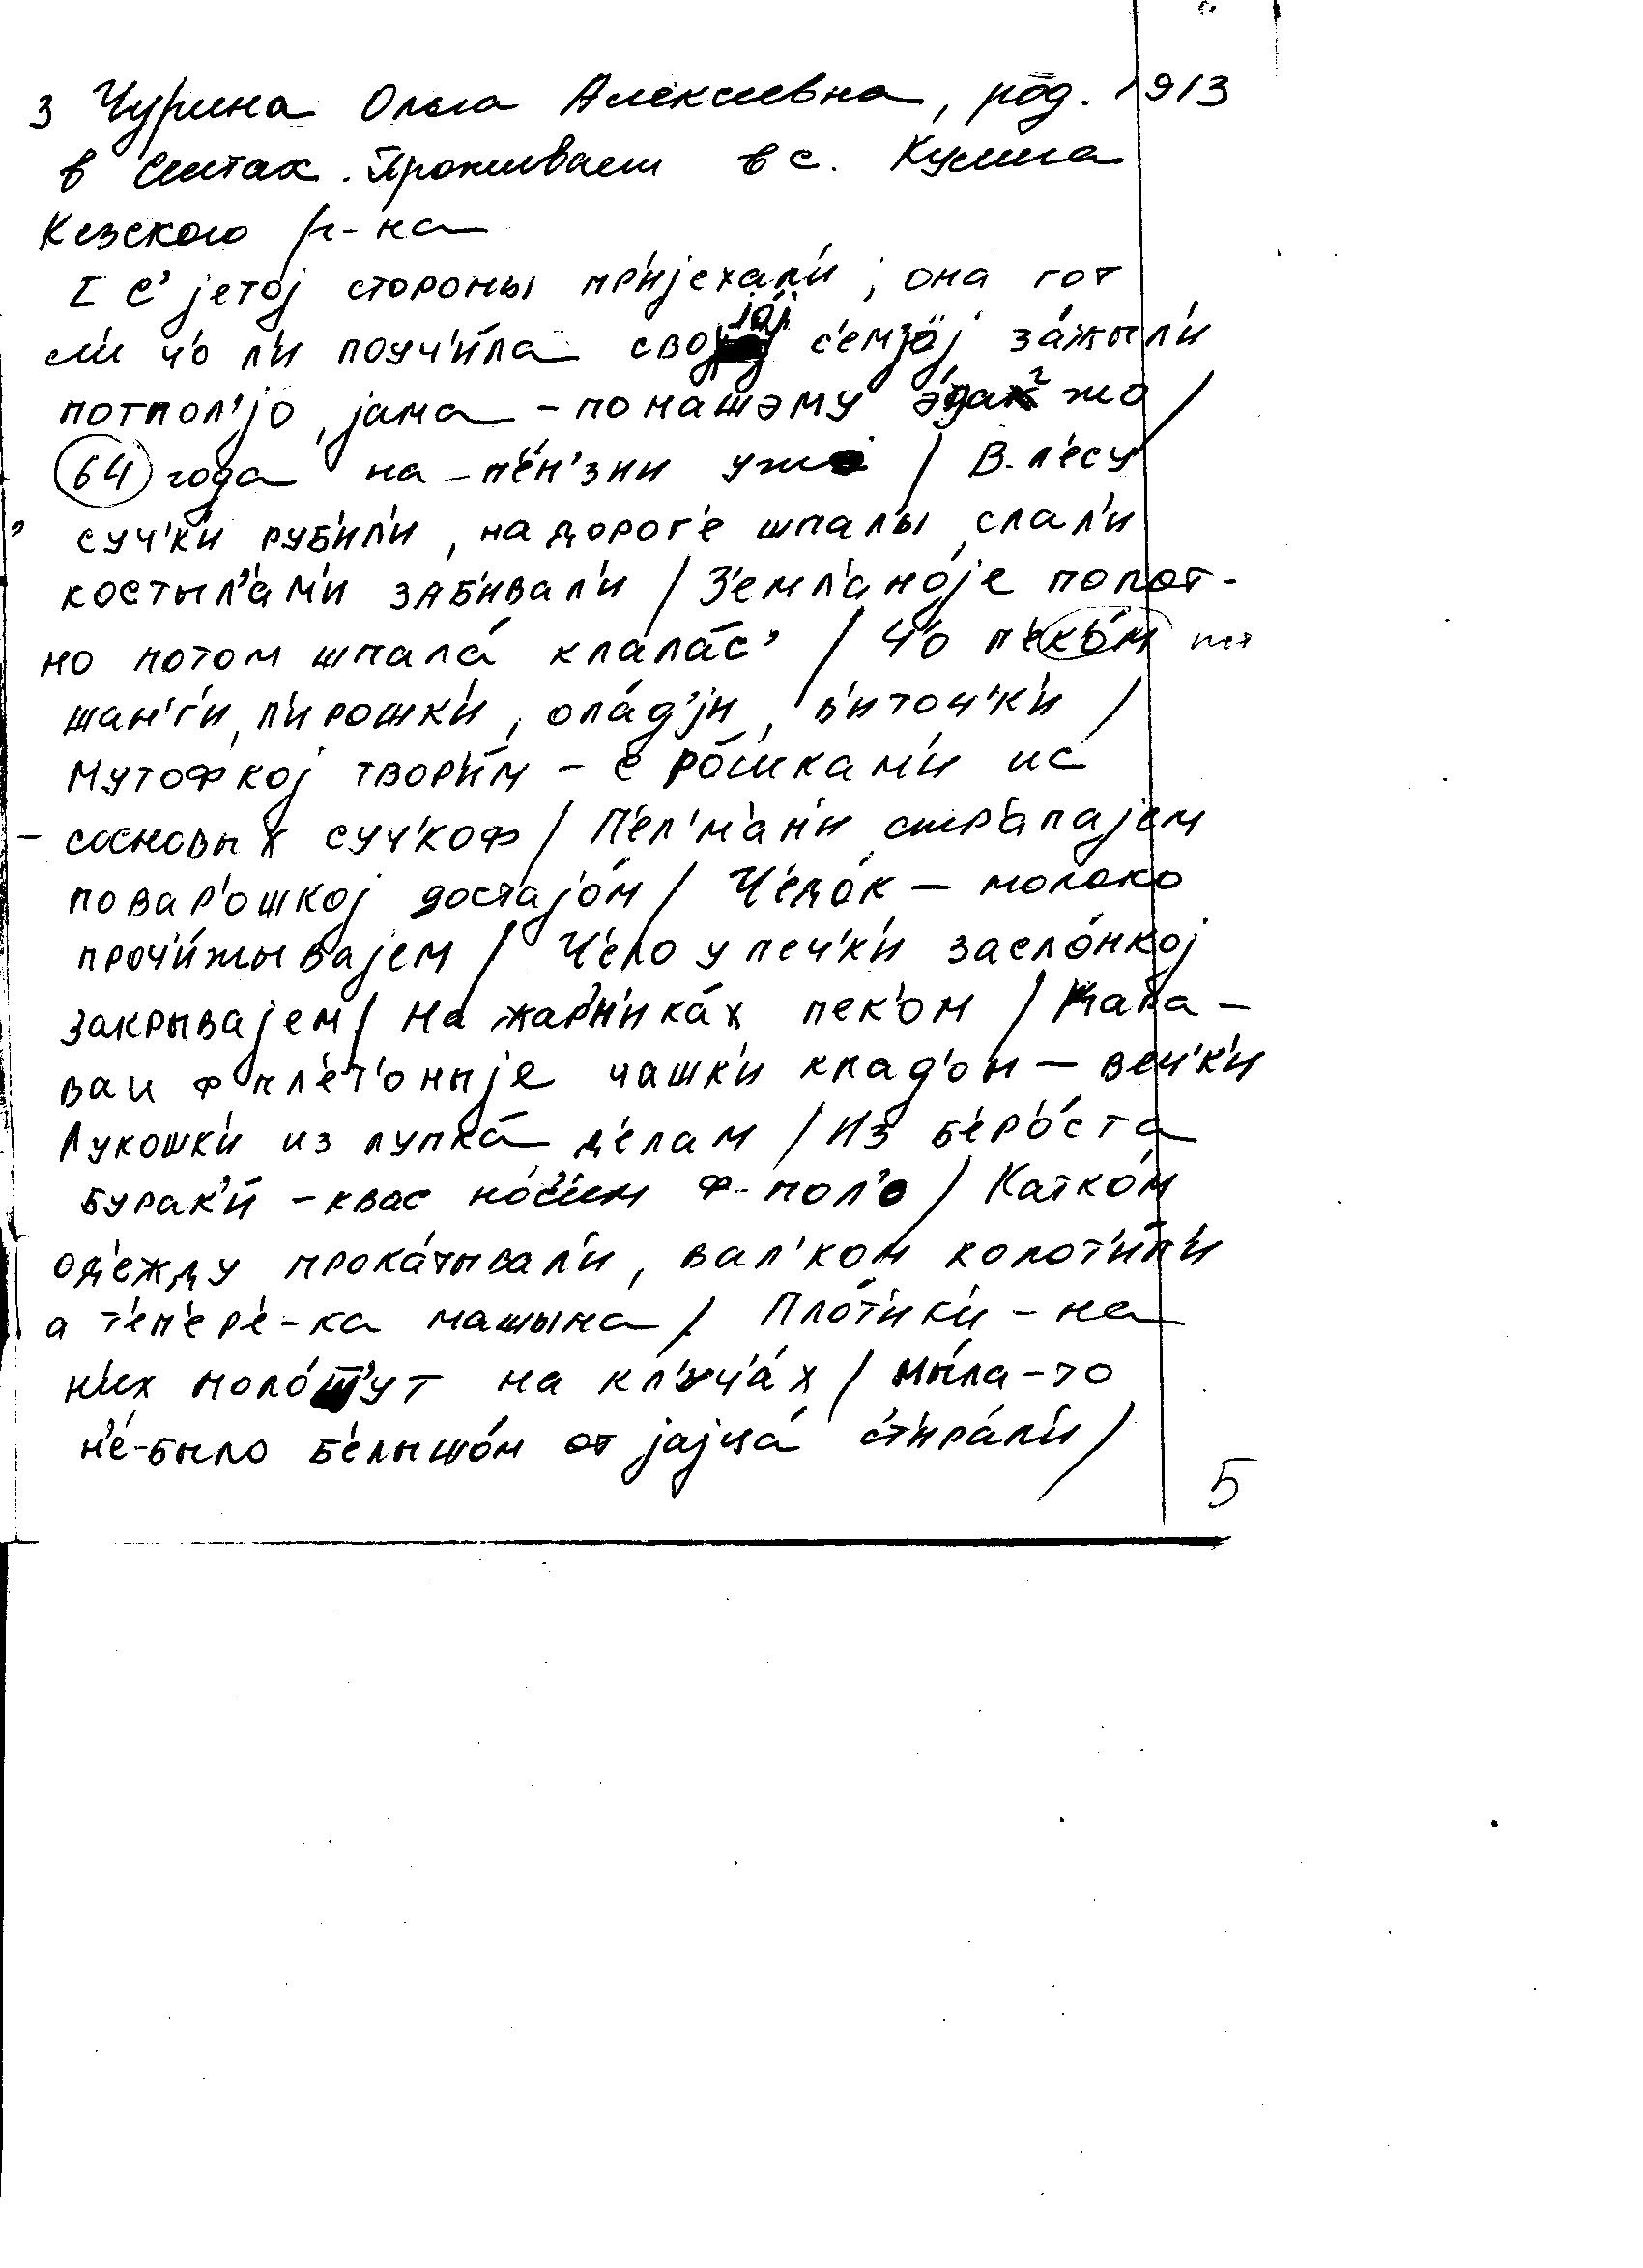 3 Чурина Ольга Алексеевна, род. 1913
в Сютах. Проживает в с. Кулига
Кезского р-на
I с’ jетоj стороны пр’иjехал’и, она гот
л’и ч’о л’и поуч’ила своjоj с’емjоj зажыл’и
потпол’jо, jама – по нашэму эдак жо /
64 года на-п’ен’зии ужо / В-л’есу
суч’к’и руб’ил’и, на дорог’е шпалы слал’и
костыл’ам’и заб’ивал’и / З’емл’аноjе полот-
но потом шпала клалас’ / Ч’о п’ек’ом
шан’г’и, п’ирошк’и, олад’jи, в’иточ’к’и /
Мутофкоj твор’им – с рошкам’и ис
– сосновых суч’коф / П’ел’м’ан’и стр’апаjем
повар’ошкоj достаjом / Ч’едок – молоко
проч’ижываjем / Ч’ело у печ’к’и заслонкоj
закрываjем / На жарн’иках пек’ом / Кара-
ваи ф пл’ет’оныjе чашк’и клад’ом – веч’к’и
Лукошк’и из лупка д’елам / Из б’ер’оста
бурак’и – квас нос’им ф-пол’о / Катком
од’ежду прокатывал’и, вал’ком колот’ил’и
а т’еп’ер’е-ка машына / Плот’ик’и – на
н’их молот’ут на кл’уч’ах / Мыла-то
н’е-было б’елышом от jаjца ст’ирал’и /
5